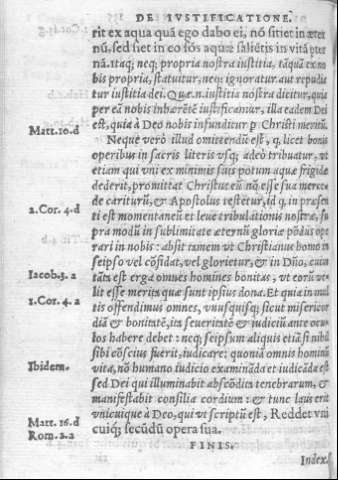 DE IVSTIFICATIONE.
rit ex aqua quã ego dabo ei, nõ sitiet in æter
nũ, sed fiet in eo fõs aquæ saliẽtis in vitã æter
nã. Itaq; neq; propria nostra iustitia, tãquã ex no
bis propria, statuitur, neq; ignoratur aut repudia
tur iustitia dei. Quæ.n.iustitia nostra dicitur, quia
per eã nobis inhærẽtẽ iustificamur, illa eadem Dei
est, quia à Deo nobis infunditur p Christi meritũ.
Matt.10.d
Neque verò illud omittendũ est, q, licet bonis
operibus in sacris literis vsq; adeò tribuatur, vt
etiam qui vni ex minimis suis potum aquæ frigidæ
dederit, promittat Christus eũ nõ esse sua mercede
2.Cor.4.d
cariturũ, & Apostolus testetur, id q, in præsen
ti est momentaneũ et leue tribulationis nostræ, su
pra modũ in sublimitate æternũ gloriæ põdus ope
rari in nobis: absit tamen vt Christianus homo in
seipso vel cõfidat, vel glorietur, & in Dño, cuius
Iacob.3.a
tãta est erga omnes homines bonitas, vt eorũ ve-
lit esse merita quæ sunt ipsius dona. Et quia in mul
1.Cor.4.a
tis offendimus omnes, vnusquisq; sicut misericor
diã & bonitatẽ, ita seueritatẽ & iudiciũ ante ocu-
los habere debet: neq; seipsum aliquis etiã si nihil
sibi cõscius fuerit, iudicare: quoniã omnis hominũ
Ibidem.
vita, nõ humano iudicio examinãda et iudicãda est
sed Dei qui illuminabit abscõdita tenebrarum, &
manifestabit consilia cordium: & tunc laus erit
vnicuique à Deo, qui vt scriptũ est, Reddet vni
Matt.16.d
Rom.2.a
cuiq; secũdũ opera sua.
FINIS.
Index.